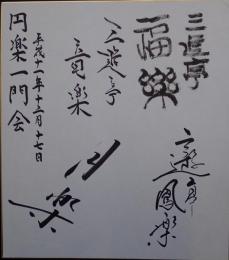 三遊亭
福樂
三遊亭
鳳樂
三遊亭
竜楽
円楽
平成十一年十二月十七日
円楽一門会